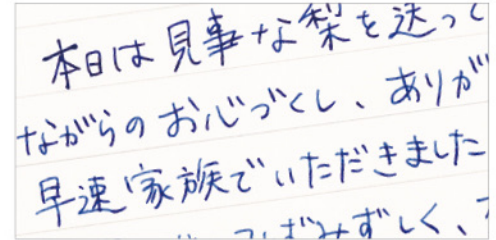 本日は見事な梨を送っ
ながらのお心づくし、ありが
早速家族でいただきました
みずしく、